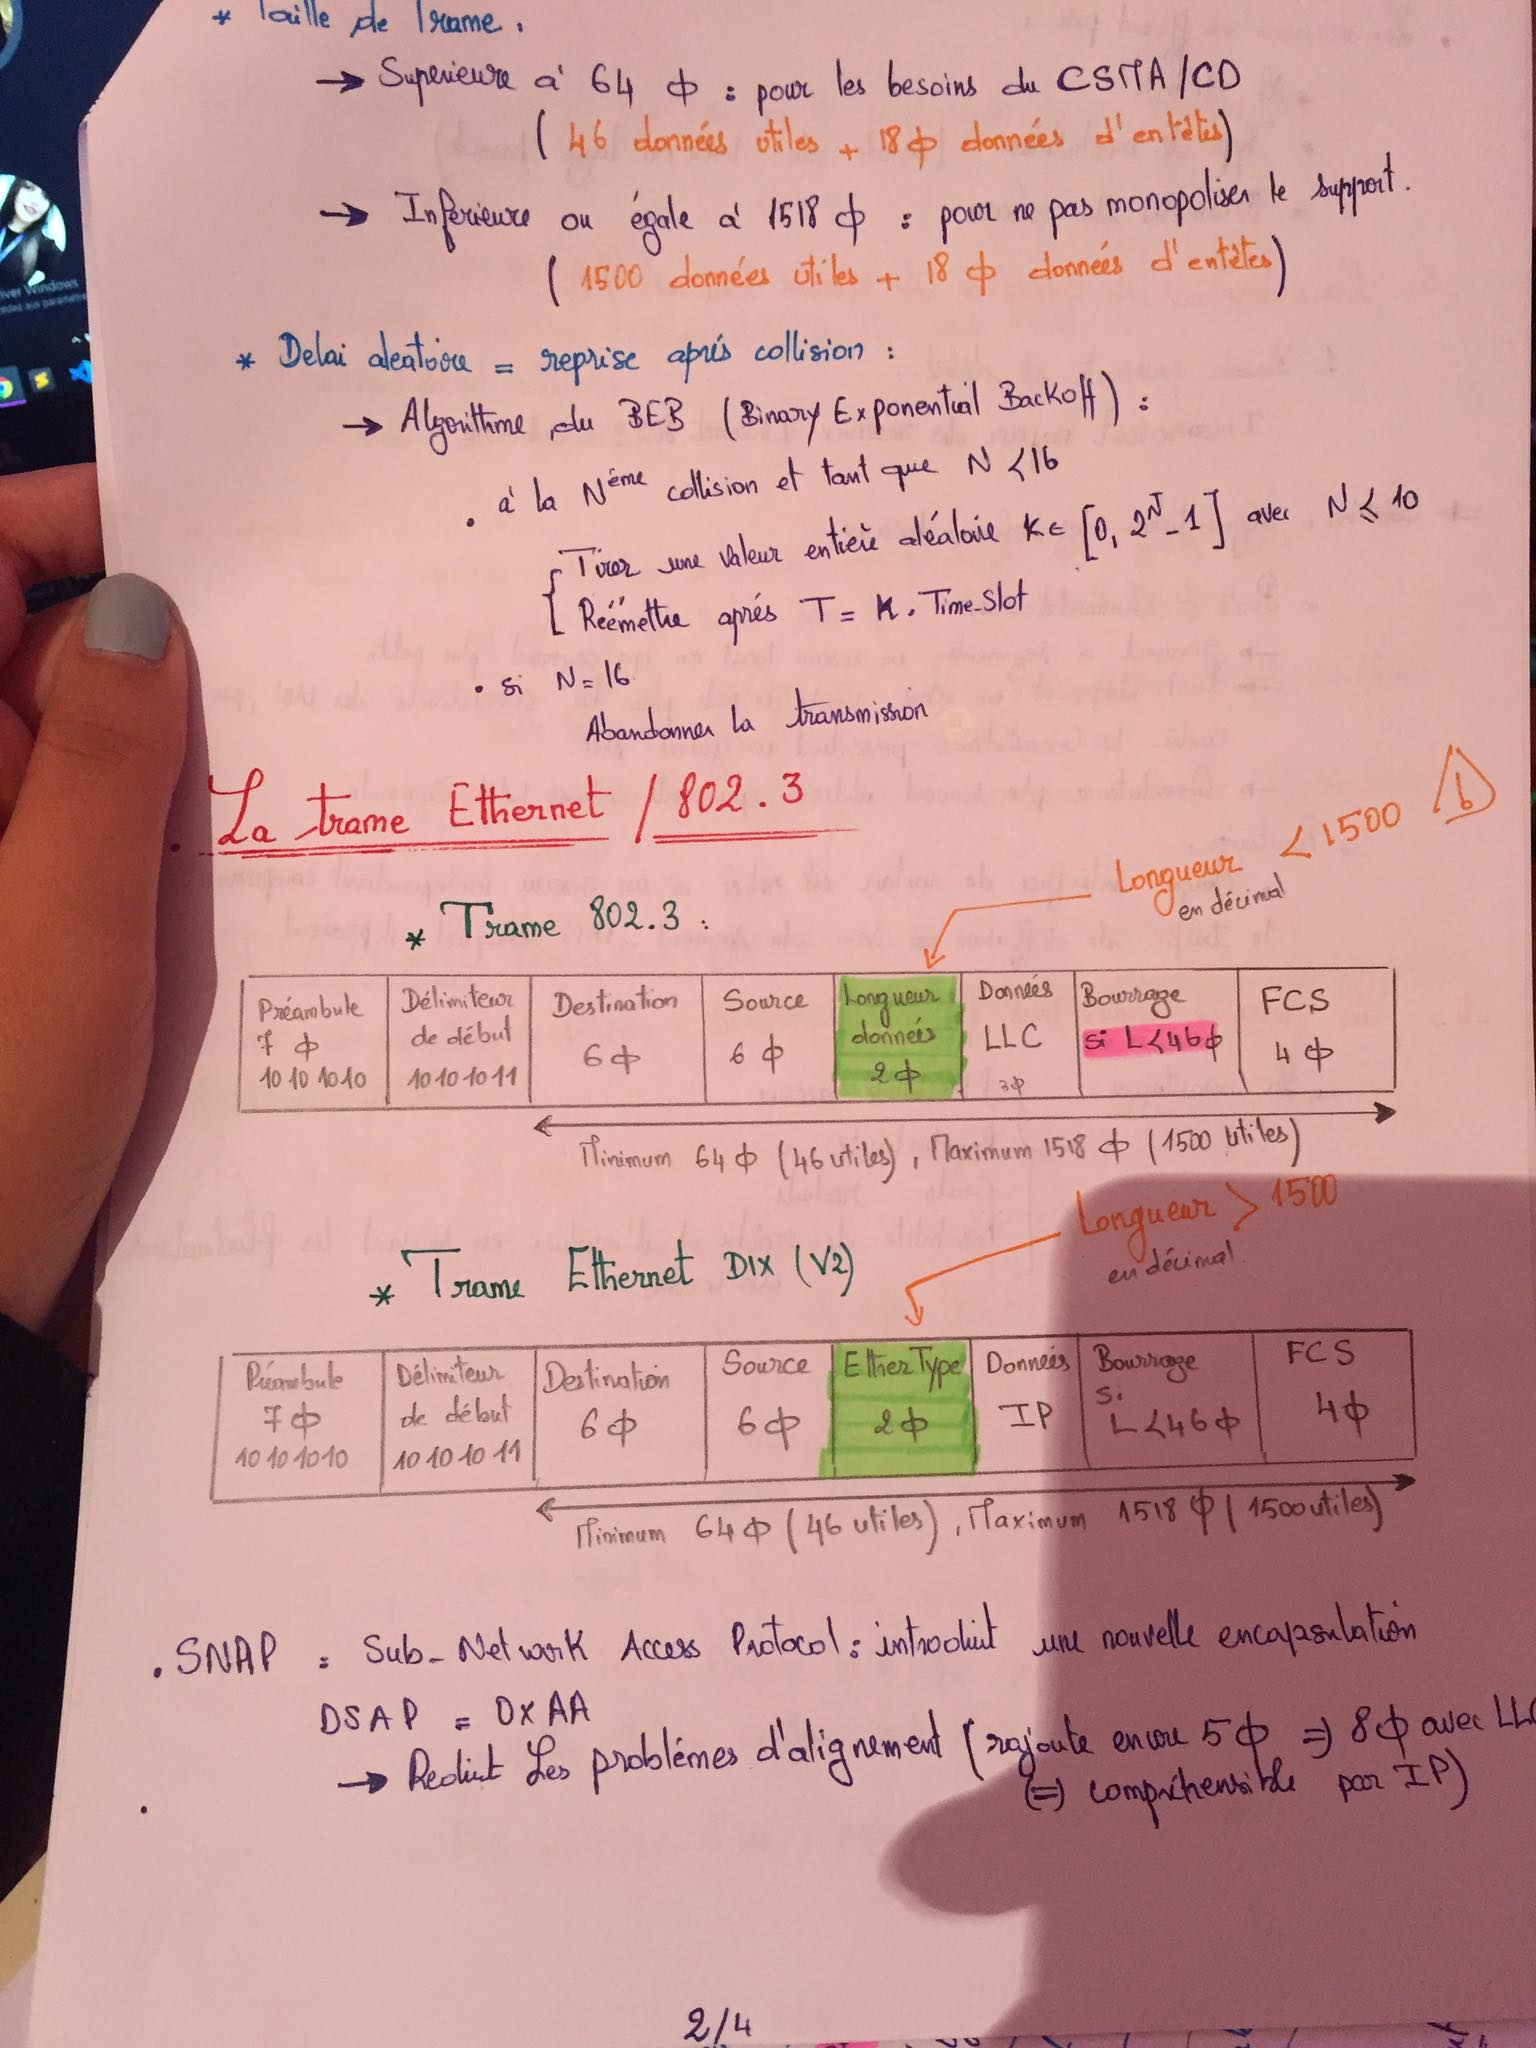 * Taille de Trame.
→ Superieure à 64 ф : pour les besoins du CSMA/CD
( 46 données utiles + 18 ф données d'entêtes)
→ Inférieure ou égale à 1518 ф : pour ne pas monopoliser le support.
( 1500 données utiles + 18 ф données d'entêtes)
* Delai aleatoire = reprise aprés collision :
→ Algorithme du BEB (Binary Exponential Backoff) :
. à la Néme collision et tant que N < 16
Tirer une valeur entière aléatoire K ∈ [0, 2^N - 1] avec N ≤ 10
Réémettre aprés T = K . Time-Slot
. si N = 16
Abandonner la transmission
. La trame Ethernet / 802.3
Longueur < 1500
en décimal
* Trame 802.3 :
Préambule 7 ф 10101010 | Délimiteur de début 10101011 | Destination 6 ф | Source 6 ф | Longueur données 2 ф | Données LLC 3ф | Bourrage si L < 46 ф | FCS 4 ф
Minimum 64 ф (46 utiles), Maximum 1518 ф (1500 utiles)
Longueur > 1500
en décimal
* Trame Ethernet DIX (V2)
Préambule 7 ф 10101010 | Délimiteur de début 10101011 | Destination 6 ф | Source 6 ф | EtherType 2 ф | Données IP | Bourrage si L < 46 ф | FCS 4 ф
Minimum 64 ф (46 utiles), Maximum 1518 ф (1500 utiles)
. SNAP : Sub-Network Access Protocol : introduit une nouvelle encapsulation
DSAP = 0xAA
→ Reduit Les problémes d'alignement (rajoute encore 5 ф ⇒ 8 ф avec LLC
(⇒) compréhensible par IP)
2/4